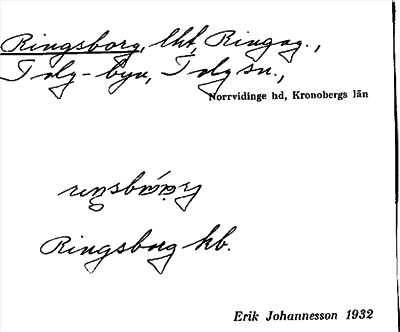 Ringsborg, lht, Ringag.,
Tolg-byn, Tolg sn.,
Norrvidinge hd, Kronobergs län
Ringsborg hb.
Erik Johannesson 1932